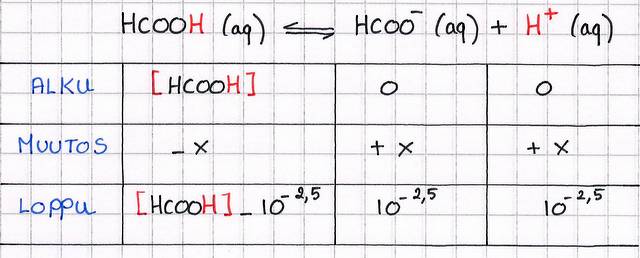 HCOOH (aq) ⇌ HCOO⁻ (aq) + H⁺ (aq)
ALKU [HCOOH] 0 0
MUUTOS - x + x + x
LOPPU [HCOOH] - 10⁻²,⁵ 10⁻²,⁵ 10⁻²,⁵